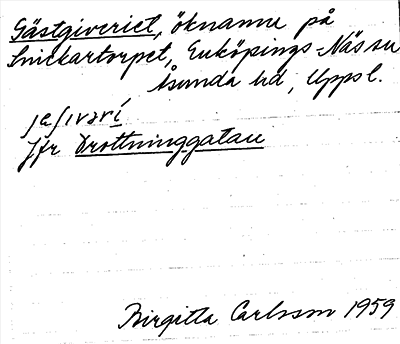 Gästgiveriet, öknamn på
Snickartorpet, Enköpings-Näs sn
Åsunda hd, Uppsl.
jäʃıvərí
Jfr Drottninggatan
Birgitta Carlsson 1959